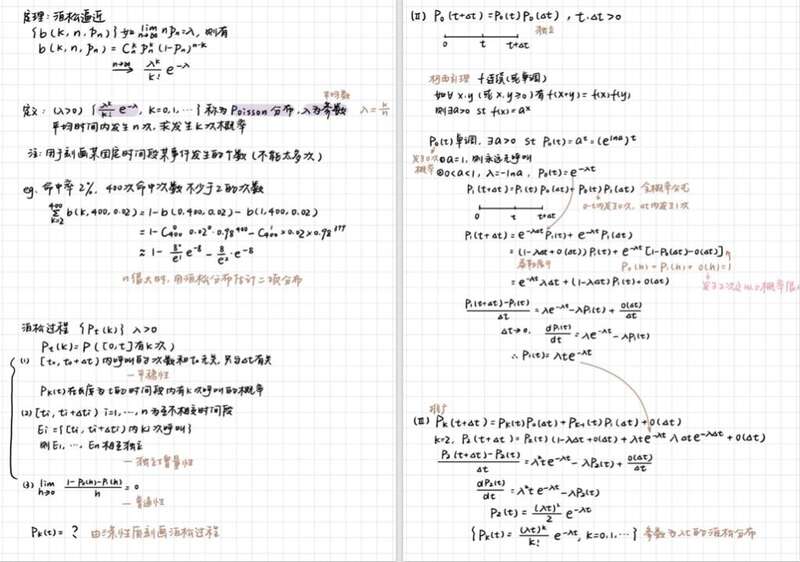 定理:泊松逼近
{b(k,n,pₙ)} 如 lim n→∞ npₙ=λ,则有
b(k,n,pₙ) = Cₙᵏ pₙᵏ (1-pₙ)ⁿ⁻ᵏ
n→∞ → λᵏ/k! e^-λ
平均数
定义:(λ>0) {λᵏ/k! e^-λ, k=0,1,…} 称为Poisson分布,λ为参数 λ=
平均时间内发生n次,求发生k次概率
注:用于刻画某固定时间段某事件发生的个数(不能太多次)
eg. 命中率2%,400次命中次数不少于2的次数
Σ(k=2→400) b(k,400,0.02) = 1-b(0,400,0.02)-b(1,400,0.02)
= 1-C₄₀₀⁰ 0.02⁰·0.98⁴⁰⁰ - C₄₀₀¹×0.02×0.98³⁹⁹
≈ 1- e⁻⁸ - ·e⁻⁸
n很大时,用泊松分布估计二项分布
泊松过程 {Pt(k)} λ>0
Pt(k)=P([0,t]有k次)
(1) [t₀,t₀+Δt)内呼叫的次数和t₀无关,只与Δt有关
—平稳性
Pk(t)在长度为t的时间段内有k次呼叫的概率
(2) [ti,ti+Δti) i=1,…,n为互不相交时间段
Ei={[ti,ti+Δti)内ki次呼叫}
则E1,…,En相互独立
—独立增量性
(3) lim h→0 (1-P₀(h)-P₁(h))/h = 0
—普通性
Pk(t)= ? 由三条性质刻画泊松过程
(I) P₀(t+Δt)=P₀(t)P₀(Δt), t,Δt>0
独立
0 t t+Δt
柯西定理 f连续(或单调)
如∀x,y(或x,y≥0)有f(x+y)=f(x)f(y)
则∃a>0 st f(x)=aˣ
P₀(t)单调,∃a>0 st P₀(t)=aᵗ=(e^lna)ᵗ
发生0次概率
①a=1,则永远无呼叫
②0<a<1,λ=-lna,P₀(t)=e^-λt
P₁(t+Δt)=P₁(t)P₀(Δt)+P₀(t)P₁(Δt) 全概率公式
0-t内发生0次,Δt内发生1次
0 t t+Δt
P₁(t+Δt)=e^-λΔt P₁(t)+e^-λt P₁(Δt)
=(1-λΔt+o(Δt))P₁(t)+e^-λt[1-P₀(Δt)-o(Δt)]
泰勒展开
P₀(h)+P₁(h)+o(h)=1
=e^-λt λΔt+(1-λΔt)P₁(t)+o(Δt)
(P₁(t+Δt)-P₁(t))/Δt = λe^-λt-λP₁(t)+o(Δt)/Δt
Δt→0, dP₁(t)/dt=λe^-λt-λP₁(t)
∴P₁(t)=λte^-λt
推广
(II) Pk(t+Δt)=Pk(t)P₀(Δt)+Pk-1(t)P₁(Δt)+o(Δt)
k=2, P₂(t+Δt)=P₂(t)(1-λΔt+o(Δt))+λte^-λt λΔte^-λΔt+o(Δt)
(P₂(t+Δt)-P₂(t))/Δt=λ²te^-λt-λP₂(t)+o(Δt)/Δt
dP₂(t)/dt=λ²te^-λt-λP₂(t)
P₂(t)=(λt)²/2 e^-λt
{Pk(t)=(λt)ᵏ/k! e^-λt, k=0,1,…} 参数为λt的泊松分布